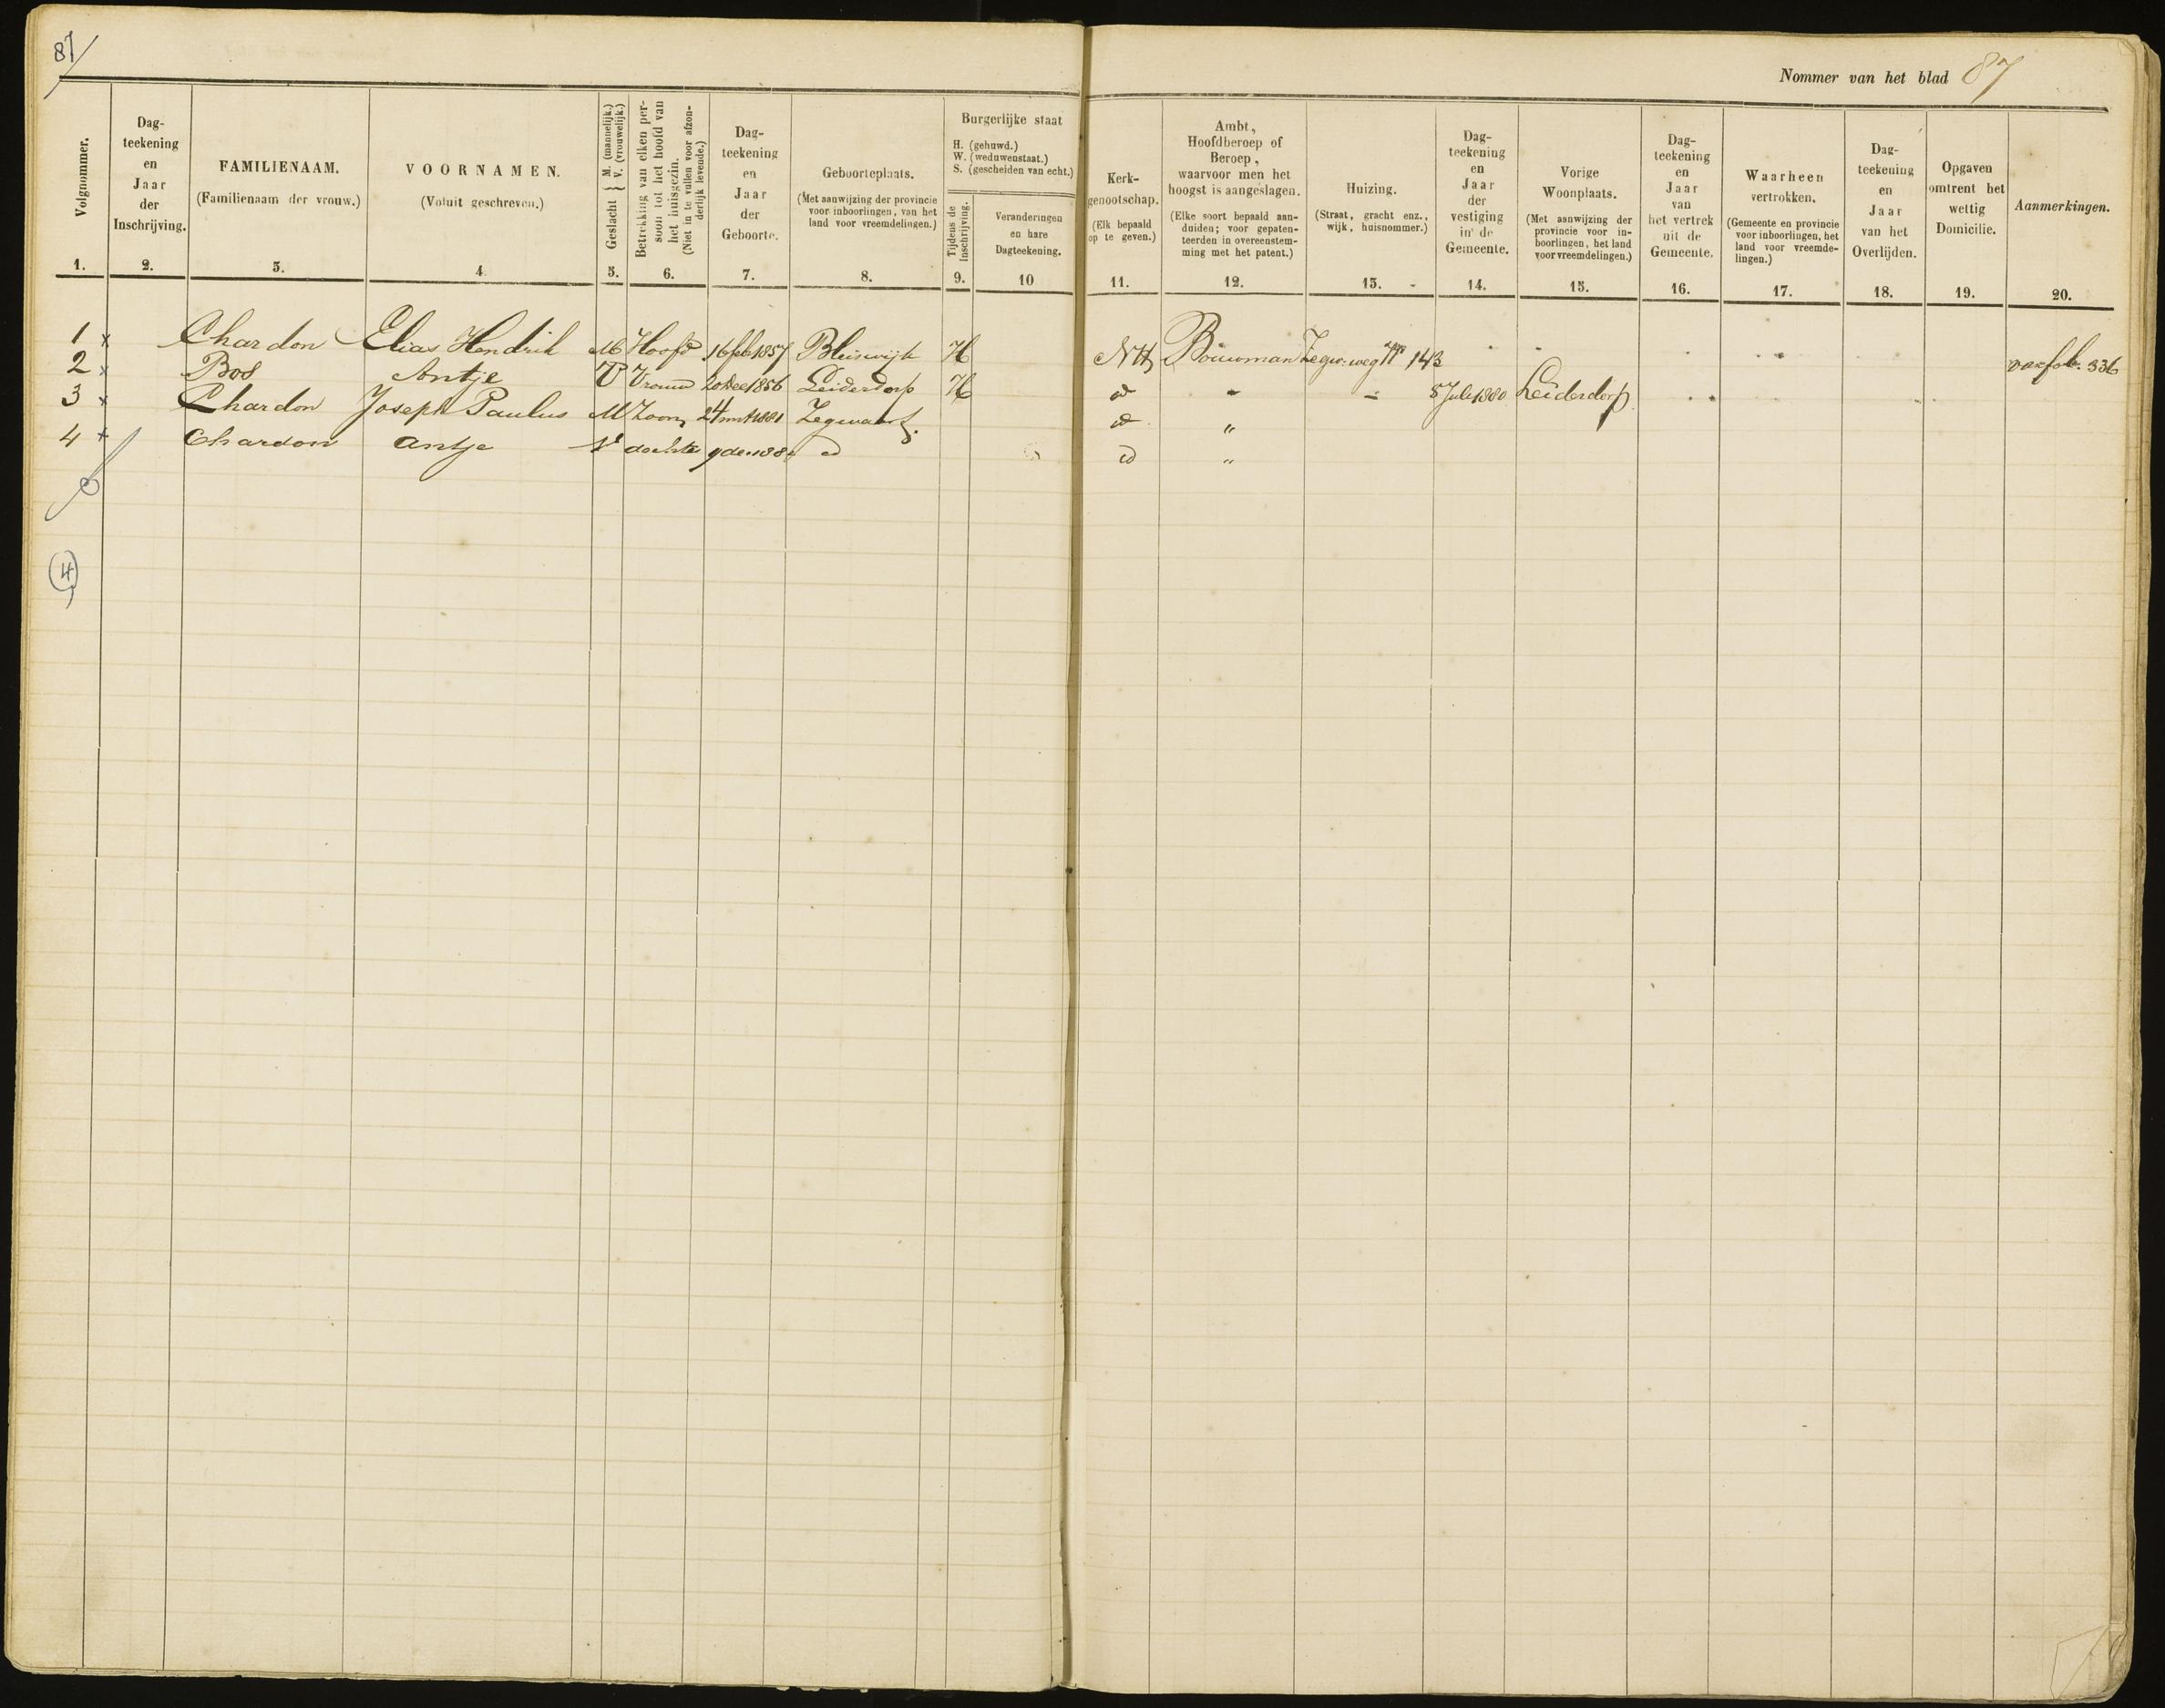 87
Nommer van het blad 87
Volgnommer.
1.
Dag-
teekening
en
Jaar
der
Inschrijving.
2.
FAMILIENAAM.
(Familienaam der vrouw.)
3.
VOORNAMEN.
(Voluit geschreven.)
4.
Geslacht { M. (mannelijk.)
V. (vrouwelijk.)
5.
Betrekking van elken per-
soon tot het hoofd van
het huisgezin.
(Niet in te vullen voor afzon-
derlijk levende.)
6.
Dag-
teekening
en
Jaar
der
Geboorte.
7.
Geboorteplaats.
(Met aanwijzing der provincie
voor inboorlingen, van het
land voor vreemdelingen.)
8.
Burgerlijke staat
H. (gehuwd.)
W. (weduwenstaat.)
S. (gescheiden van echt.)
Tijdens de
Inschrijving.
9.
Veranderingen
en hare
Dagteekening.
10
Kerk-
genootschap.
(Elk bepaald
op te geven.)
11.
Ambt,
Hoofdberoep of
Beroep,
waarvoor men het
hoogst is aangeslagen.
(Elke soort bepaald aan-
duiden; voor gepaten-
teerden in overeenstem-
ming met het patent.)
12.
Huizing.
(Straat, gracht enz.,
wijk, huisnommer.)
13.
Dag-
teekening
en
Jaar
der
vestiging
in de
Gemeente.
14.
Vorige
Woonplaats.
(Met aanwijzing der
provincie voor in-
boorlingen, het land
voor vreemdelingen.)
15.
Dag-
teekening
en
Jaar
van
het vertrek
uit de
Gemeente.
16.
Waarheen
vertrokken.
(Gemeente en provincie
voor inboorlingen, het
land voor vreemde-
lingen.)
17.
Dag-
teekening
en
Jaar
van het
Overlijden.
18.
Opgaven
omtrent het
wettig
Domicilie.
19.
Aanmerkingen.
20.
1 x Chardon Elias Hendrik M Hoofd 16 feb 1857 Bleiswijk H NH Bouwman Zegw. weg 143 336
2 x Bos Antje V Vrouw 20 Dec 1856 Leiderdorp H id - - 5 Juli 1880 Leiderdorp
3 x Chardon Joseph Paulus M Zoon 24 mrt 1881 Zegwaart. id "
4 x Chardon Antje V dochter 9 dec id id "
4